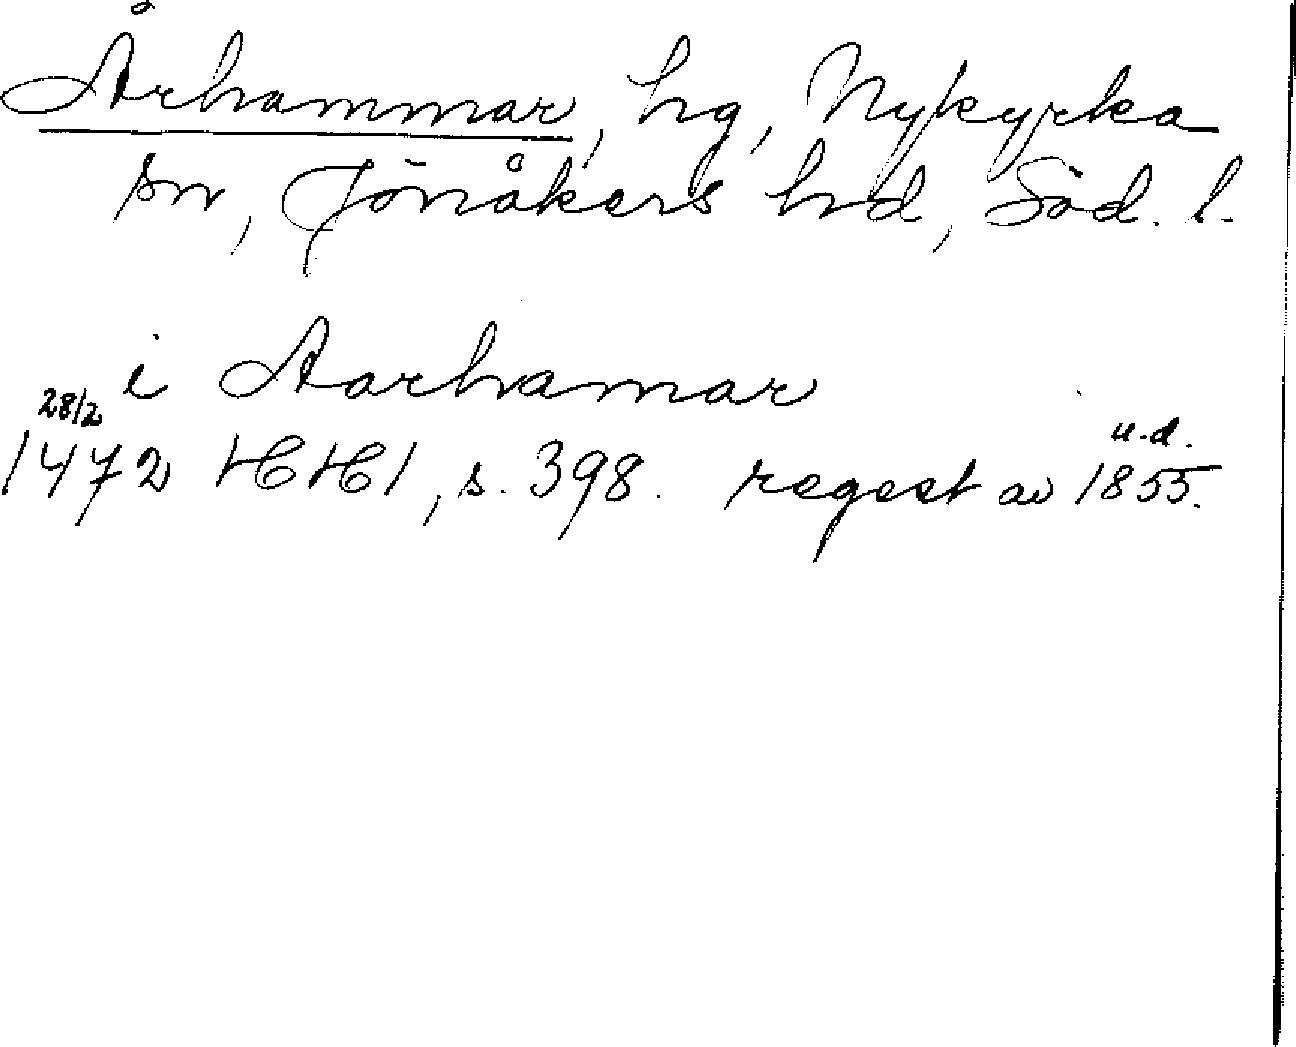 Århammar, hg, Nykyrka
sn, Jönåkers hd, Söd. l.
i Aarhamar
28/2 u.d.
1472 HH1, s. 398. regest av 1855.